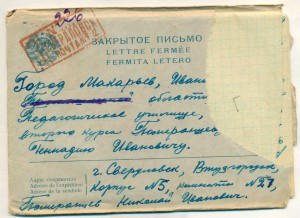 226
ЗАКРЫТОЕ ПИСЬМО
LETTRE FERMÉE
FERMITA LETERO
Город Макарьев, Ивано
области
Педагогическое училище,
второго курса
Геннадию Ивановичу.
Адрес отправителя
Adresse de l'expéditeur
Adreso de la sendinto
г. Свердловск, Втузгородок,
Корпус №5, комната №27,
Николай Иванович.